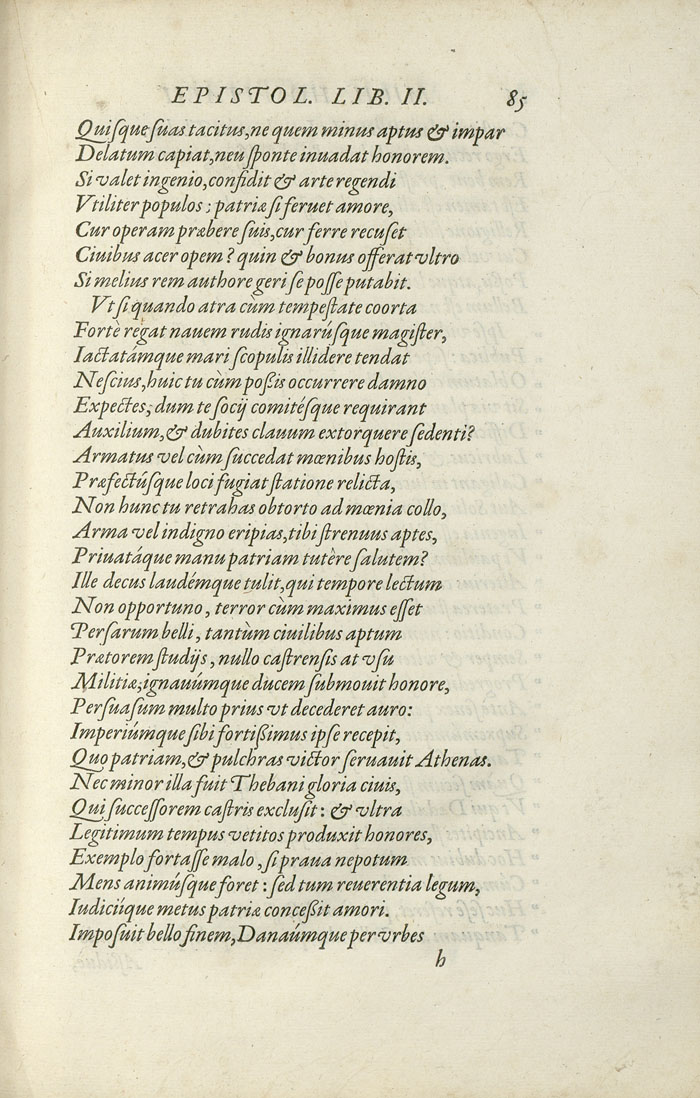 EPISTOL. LIB. II. 85
Quisque suas tacitus, ne quem minus aptus & impar
Delatum capiat, neu sponte inuadat honorem.
Si valet ingenio, confidit & arte regendi
Vtiliter populos; patriæ si feruet amore,
Cur operam præbere suis, cur ferre recuset
Ciuibus acer opem? quin & bonus offerat vltro
Si melius rem authore geri se posse putabit.
Vt si quando atra cùm tempestate coorta
Fortè regat nauem rudis ignarúsque magister,
Iactatámque mari scopulis illidere tendat
Nescius, huic tu cùm poßis occurrere damno
Expectes, dum te socij comitésque requirant
Auxilium, & dubites clauum extorquere sedenti?
Armatus vel cùm succedat mœnibus hostis,
Præfectúsque loci fugiat statione relicta,
Non hunc tu retrahas obtorto ad mœnia collo,
Arma vel indigno eripias, tibi strenuus aptes,
Priuatáque manu patriam tutère salutem?
Ille decus laudémque tulit, qui tempore lectum
Non opportuno, terror cùm maximus esset
Persarum belli, tantùm ciuilibus aptum
Prætorem studijs, nullo castrensis at vsu
Militiæ; ignauúmque ducem submouit honore,
Persuasum multo prius vt decederet auro:
Imperiúmque sibi fortißimus ipse recepit,
Quo patriam, & pulchras victor seruauit Athenas.
Nec minor illa fuit Thebani gloria ciuis,
Qui successorem castris exclusit: & vltra
Legitimum tempus vetitos produxit honores,
Exemplo fortasse malo, si praua nepotum
Mens animúsque foret: sed tum reuerentia legum,
Iudiciíque metus patriæ conceßit amori.
Imposuit bello finem, Danaúmque per vrbes
h